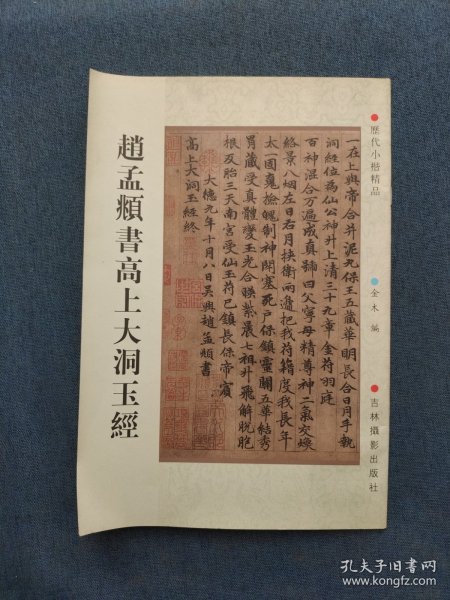 歷代小楷精品
金木 編
吉林攝影出版社
趙孟頫書高上大洞玉經
一在上與帝合并泥丸保王五藏華明長合日月手執
洞經位為仙公神升上清三十九章金符羽庭
百神混合万遍成真歸四父寧母精尊神二氣交煥
絡景八烟左日右月挾衛兩邊把我符籍度我長年
太一固魂撿魄制神閉塞死戶保鎮靈關五華結秀
胃藏受真體變玉光合暎紫晨七祖升飛解脫胞
根反胎三天南宮受仙玉符已鎮長保帝賓
大德九年十月八日吳興趙孟頫書
高上大洞玉經終
孔夫子旧书网
www.kongfz.com